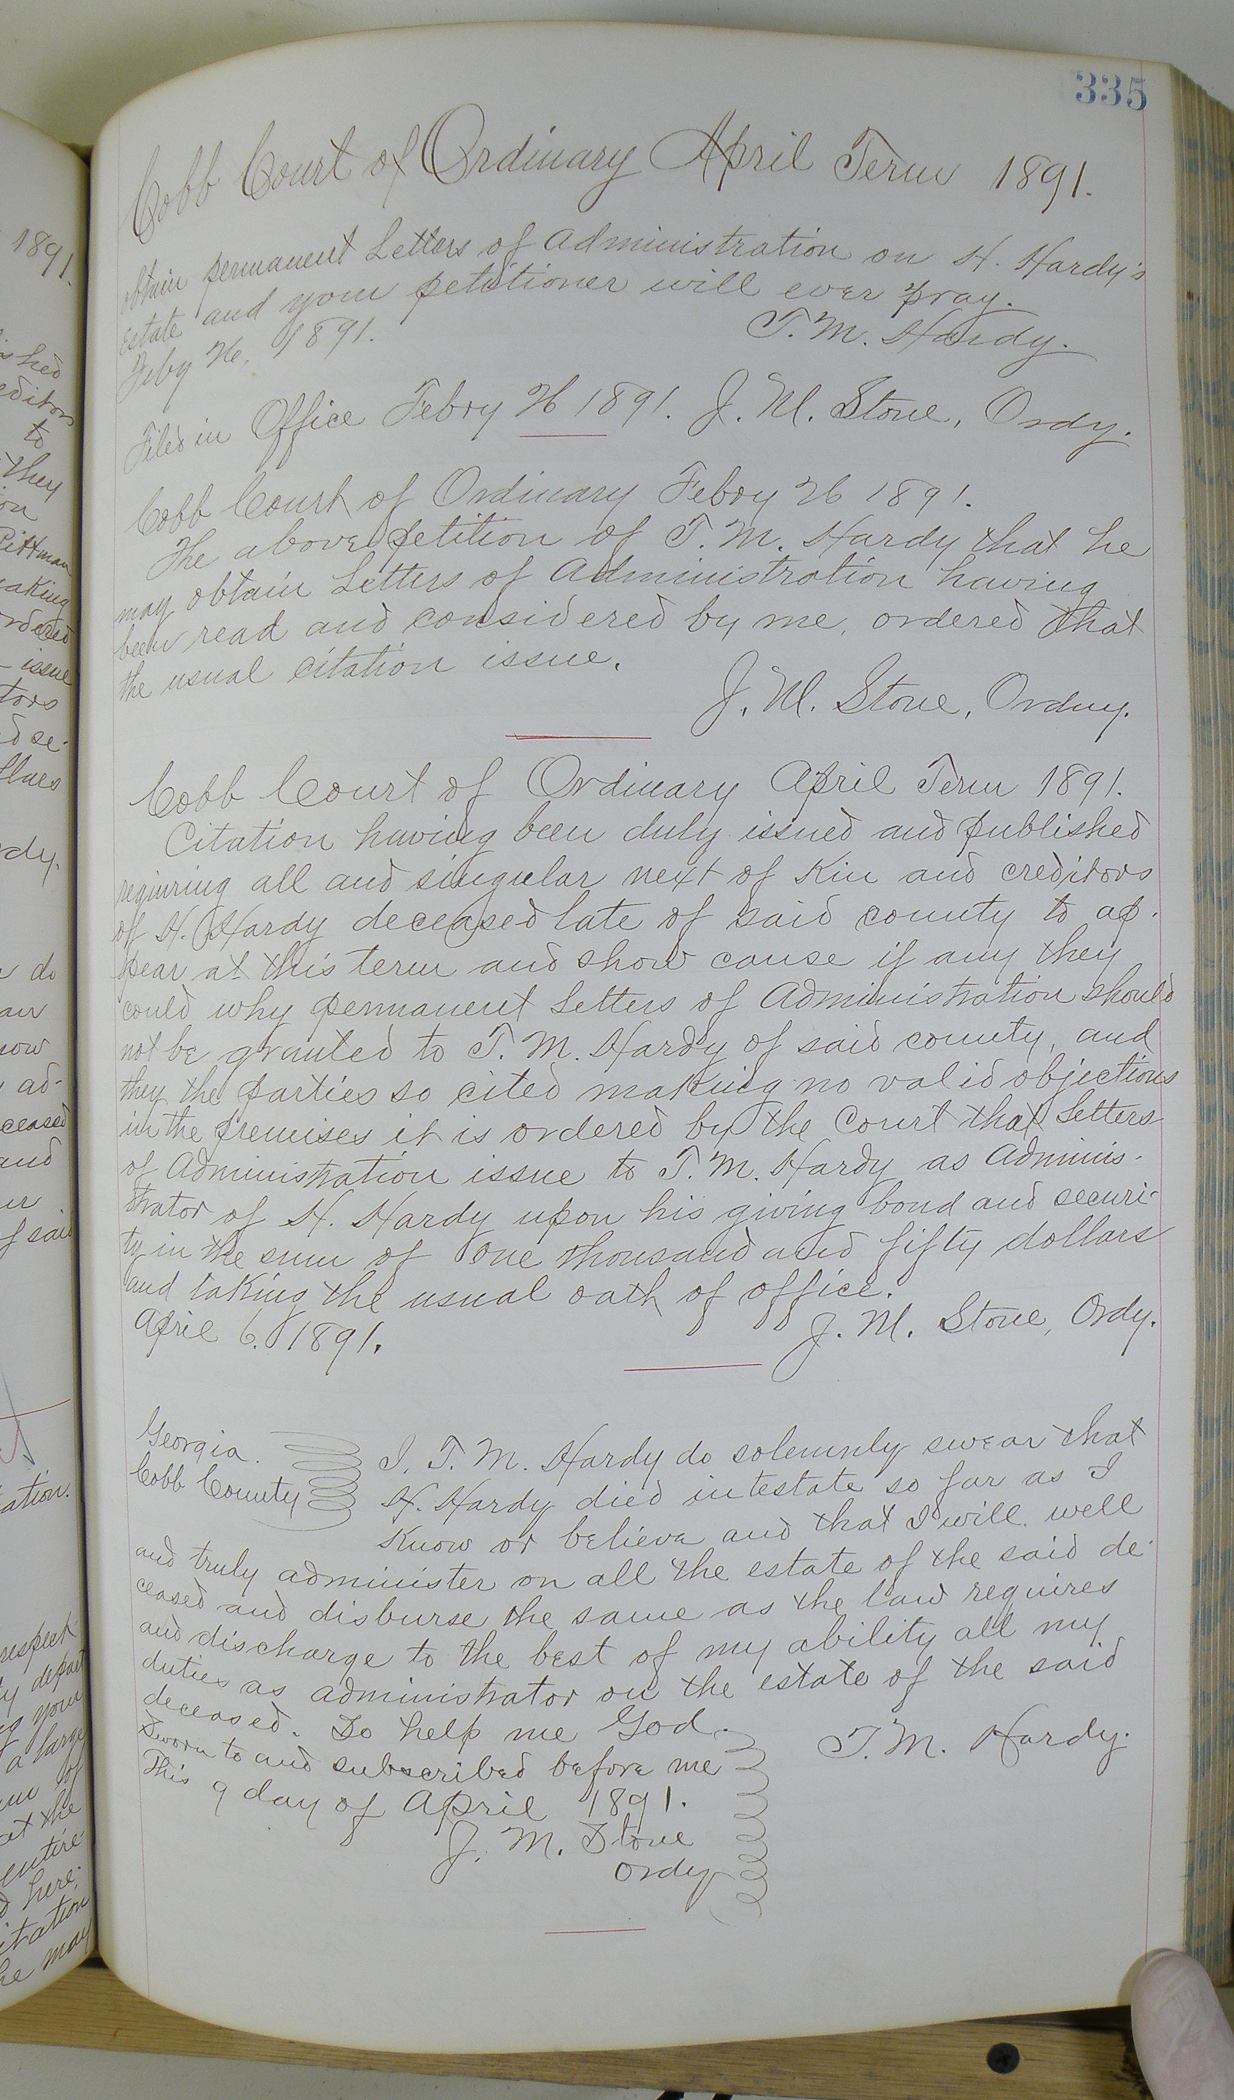 335
Cobb Court of Ordinary April Term 1891.
obtain permanent Letters of Administration on H. Hardy's
Estate and your petitioner will ever pray.
Feby 26, 1891. T. M. Hardy.
Filed in Office Febry 26 1891. J. M. Stone, Ordy.
Cobb Court of Ordinary Febry 26 1891.
The above petition of T. M. Hardy that he
may obtain Letters of Administration having
been read and considered by me, ordered that
the usual citation issue.
J. M. Stone, Ordny.
Cobb Court of Ordinary April Term 1891.
Citation having been duly issued and published
requiring all and singular next of Kin and creditors
of H. Hardy deceased late of said county to ap-
pear at this term and show cause if any they
could why permanent Letters of Administration should
not be granted to T. M. Hardy of said county, and
they the parties so cited making no valid objections
in the premises it is ordered by the Court that Letters
of Administration issue to T. M. Hardy as Adminis-
trator of H. Hardy upon his giving bond and securi-
ty in the sum of one thousand and fifty dollars
and taking the usual oath of office.
April 6. 1891. J. M. Stone, Ordy.
Georgia.
Cobb County
I, T. M. Hardy do solemnly swear that
H. Hardy died intestate so far as I
Know or believe and that I will well
and truly administer on all the estate of the said de-
ceased and disburse the same as the law requires
and discharge to the best of my ability all my
duties as administrator on the estate of the said
deceased. So help me God.
Sworn to and subscribed before me T. M. Hardy.
This 9 day of April 1891.
J. M. Stone
Ordy
1891.
ished
editors
to
they
on
Pittman
making
ordered
issue
tors
d se-
dy.
do
an
now
ad-
ceased
and
f said
ation.
respect
y depart
g your
a large
of
at the
entire
d here-
itation
he may